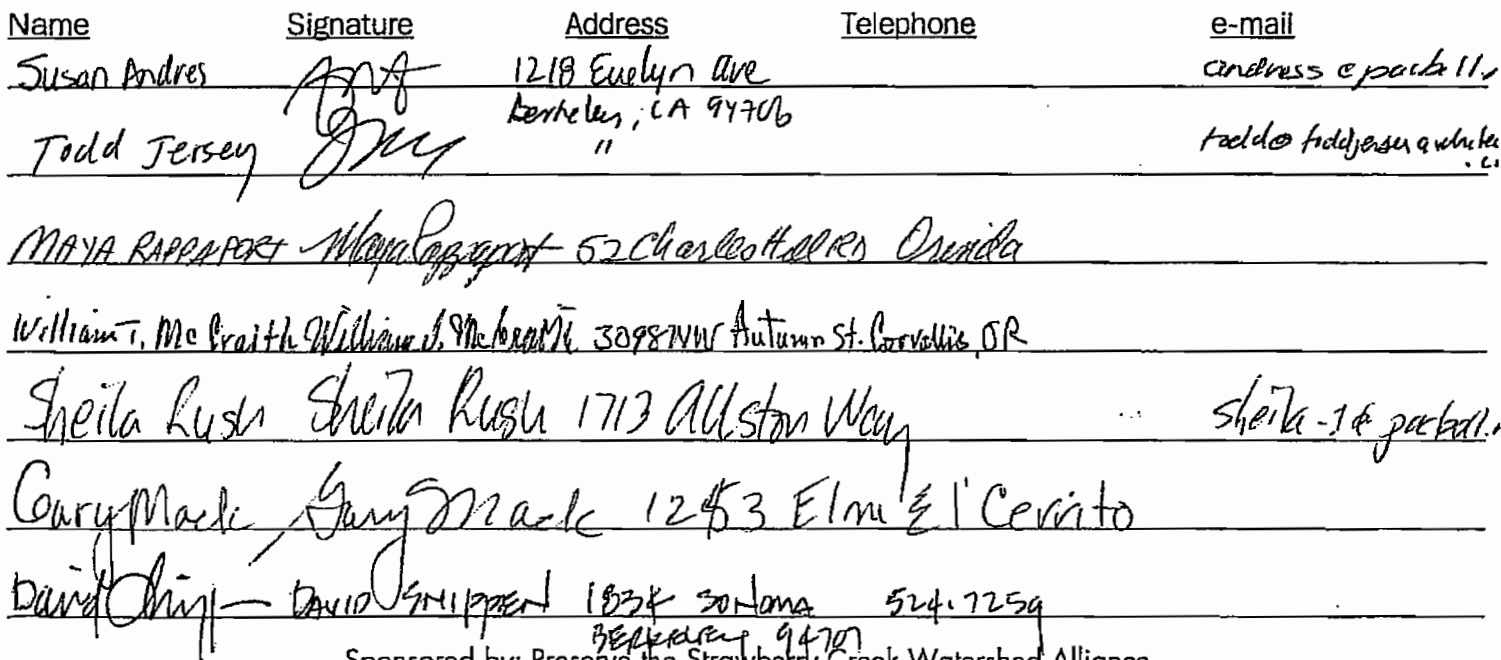 Name Signature Address Telephone e-mail
Susan Andres 1218 Evelyn Ave
Berkeley, CA 94706
Todd Jersey "
MAYA RAPPAPORT Maya Rappaport 52 Charles Hill RD Orinda
William T. McCraith William T. McCraith 3098 NW Autumn St. Corvallis, OR
Sheila Rush Sheila Rush 1713 Allston Way
Gary Mack Gary Mack Elm El Cerrito
David DAVID SHIPPEN 1834 SONOMA 524.7259
BERKELEY 94707
Sponsored by: Preserve the Strawberry Creek Watershed Alliance